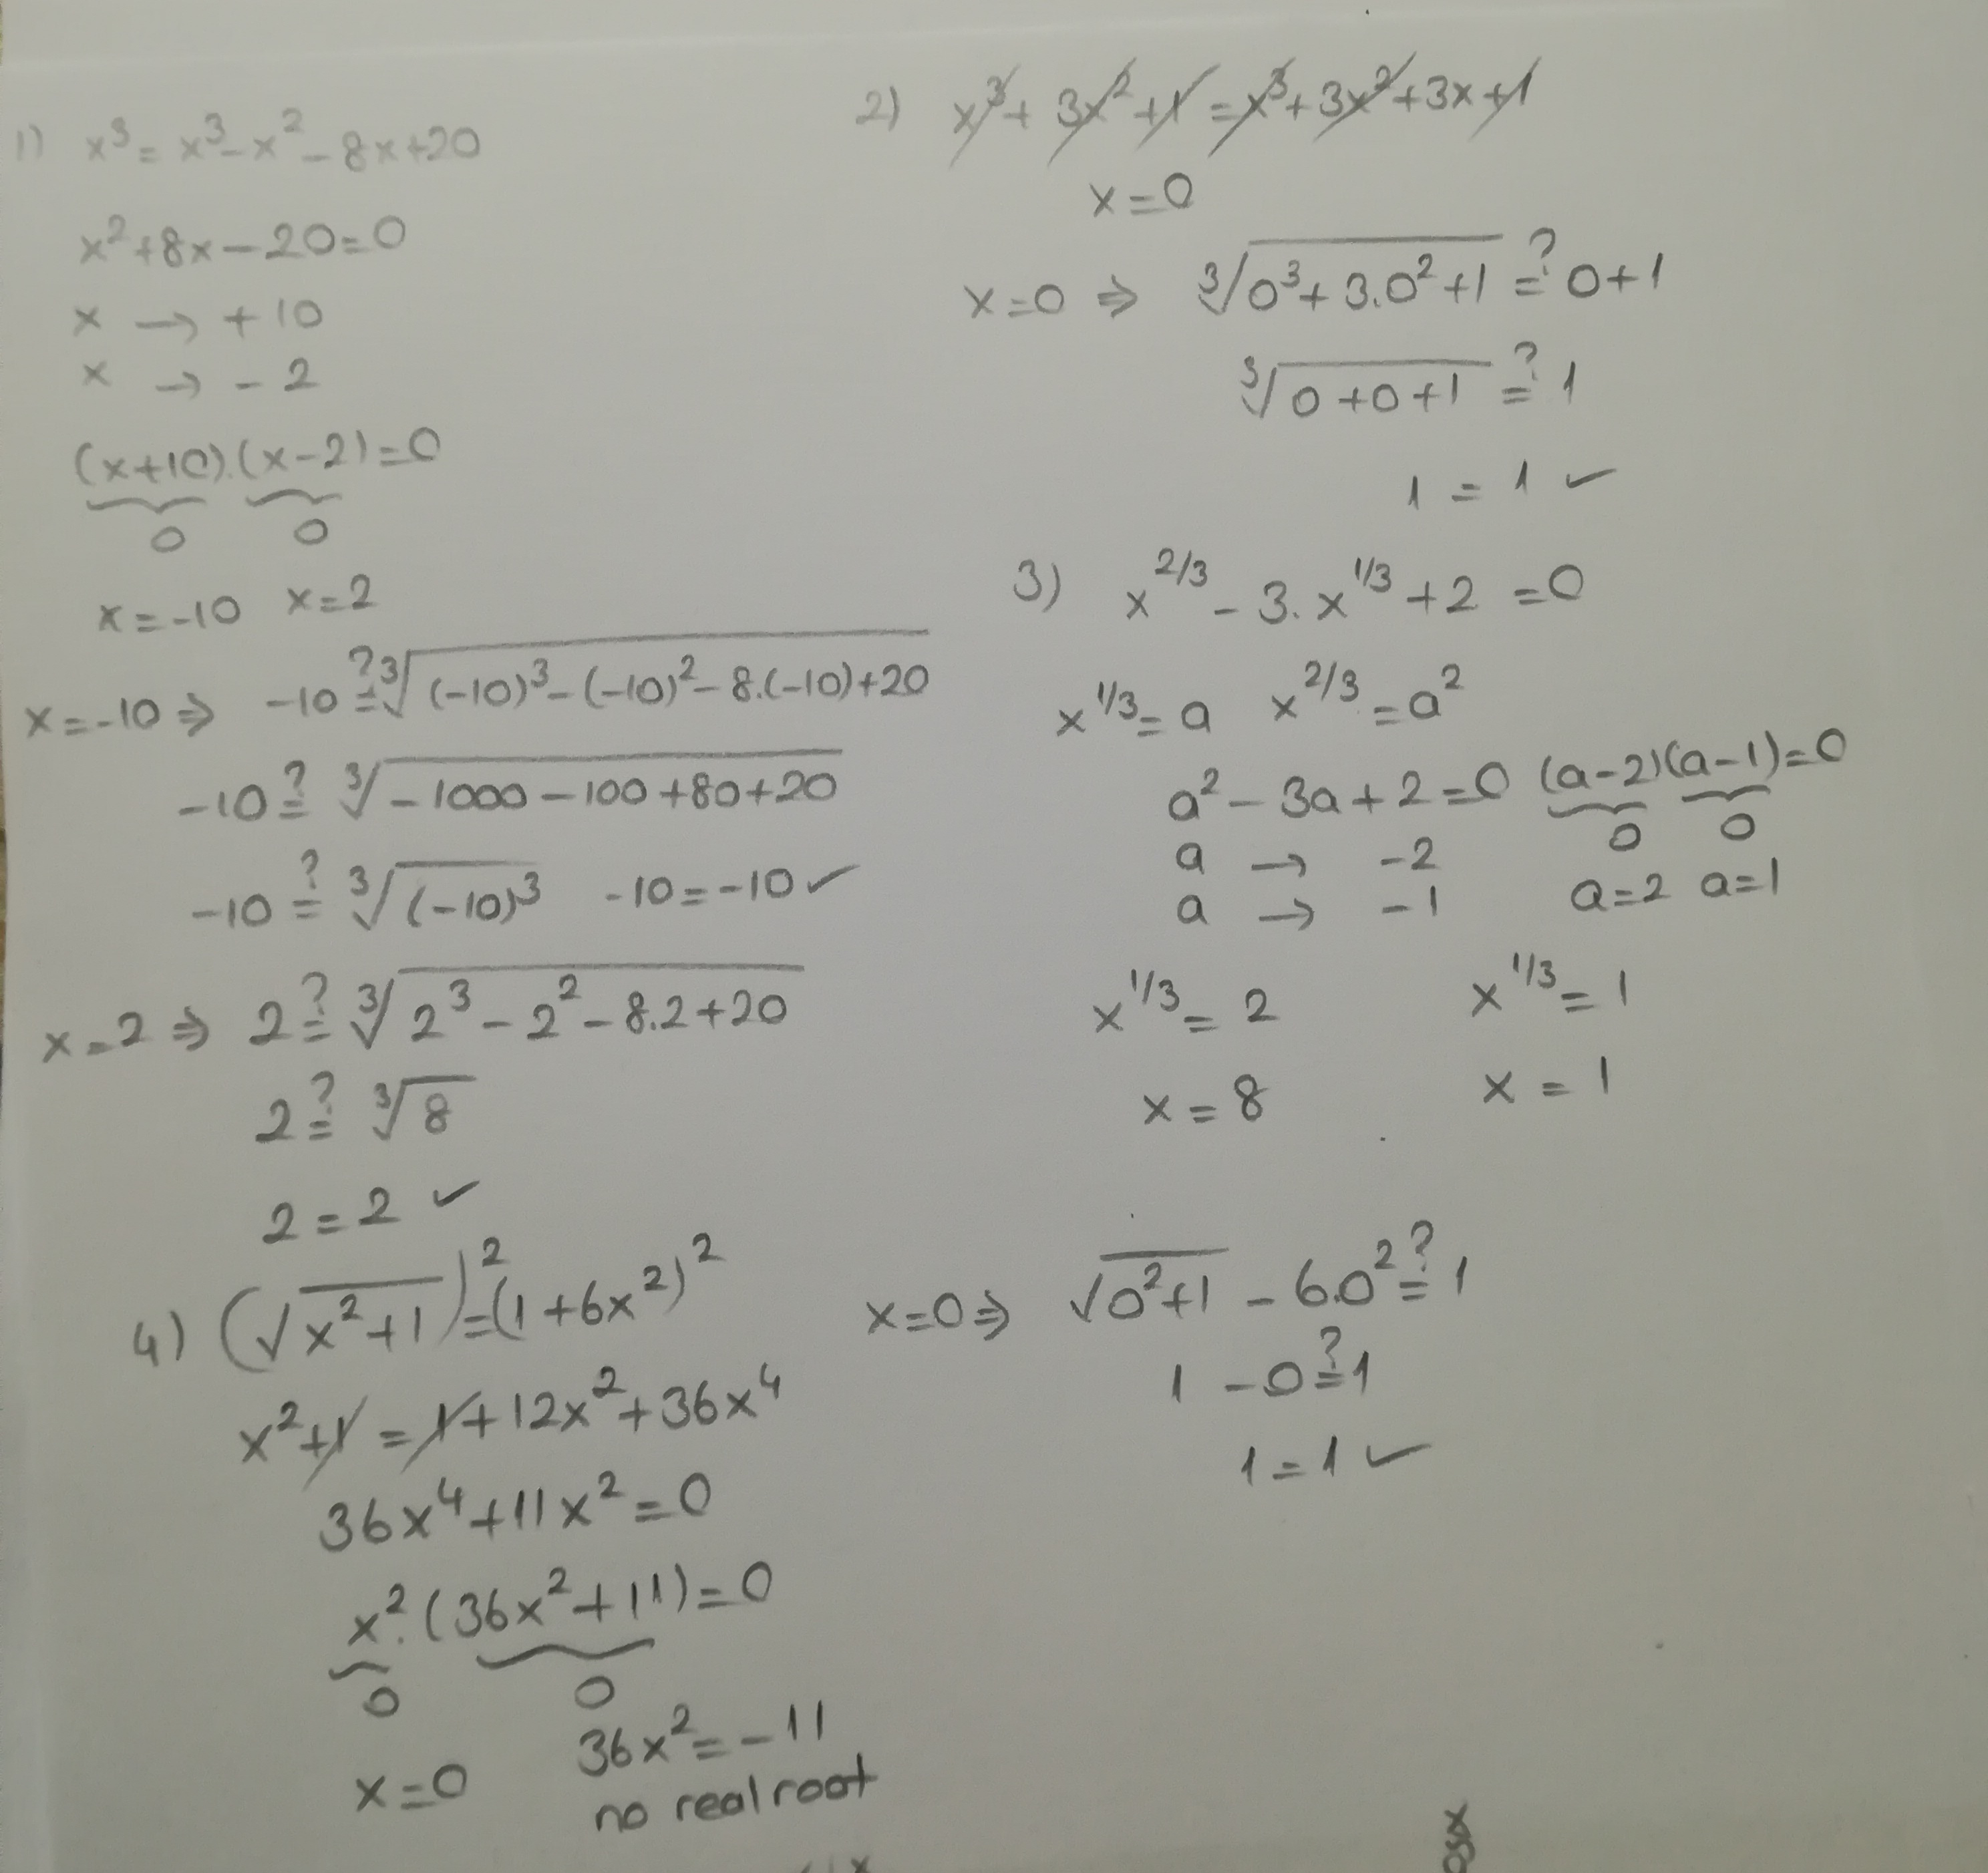 1) x³ = x³ - x² - 8x + 20
x² + 8x - 20 = 0
x → +10
x → -2
(x+10).(x-2) = 0
0 0
x = -10 x = 2
x = -10 ⇒ -10 ≟ ∛((-10)³ - (-10)² - 8.(-10) + 20)
-10 ≟ ∛(-1000 - 100 + 80 + 20)
-10 ≟ ∛((-10)³) -10 = -10 ✓
x = 2 ⇒ 2 ≟ ∛(2³ - 2² - 8.2 + 20)
2 ≟ ∛8
2 = 2 ✓
2) x³ + 3x² + 1 = x³ + 3x² + 3x + 1
x = 0
x = 0 ⇒ ∛(0³ + 3.0² + 1) ≟ 0 + 1
∛(0 + 0 + 1) ≟ 1
1 = 1 ✓
3) x^(2/3) - 3.x^(1/3) + 2 = 0
x^(1/3) = a x^(2/3) = a²
a² - 3a + 2 = 0 (a-2)(a-1) = 0
0 0
a → -2
a → -1 a = 2 a = 1
x^(1/3) = 2 x^(1/3) = 1
x = 8 x = 1
4) (√(x² + 1))² = (1 + 6x²)²
x² + 1 = 1 + 12x² + 36x⁴
36x⁴ + 11x² = 0
x².(36x² + 11) = 0
0 0
x = 0 36x² = -11
no real root
x = 0 ⇒ √(0² + 1) - 6.0² ≟ 1
1 - 0 ≟ 1
1 = 1 ✓